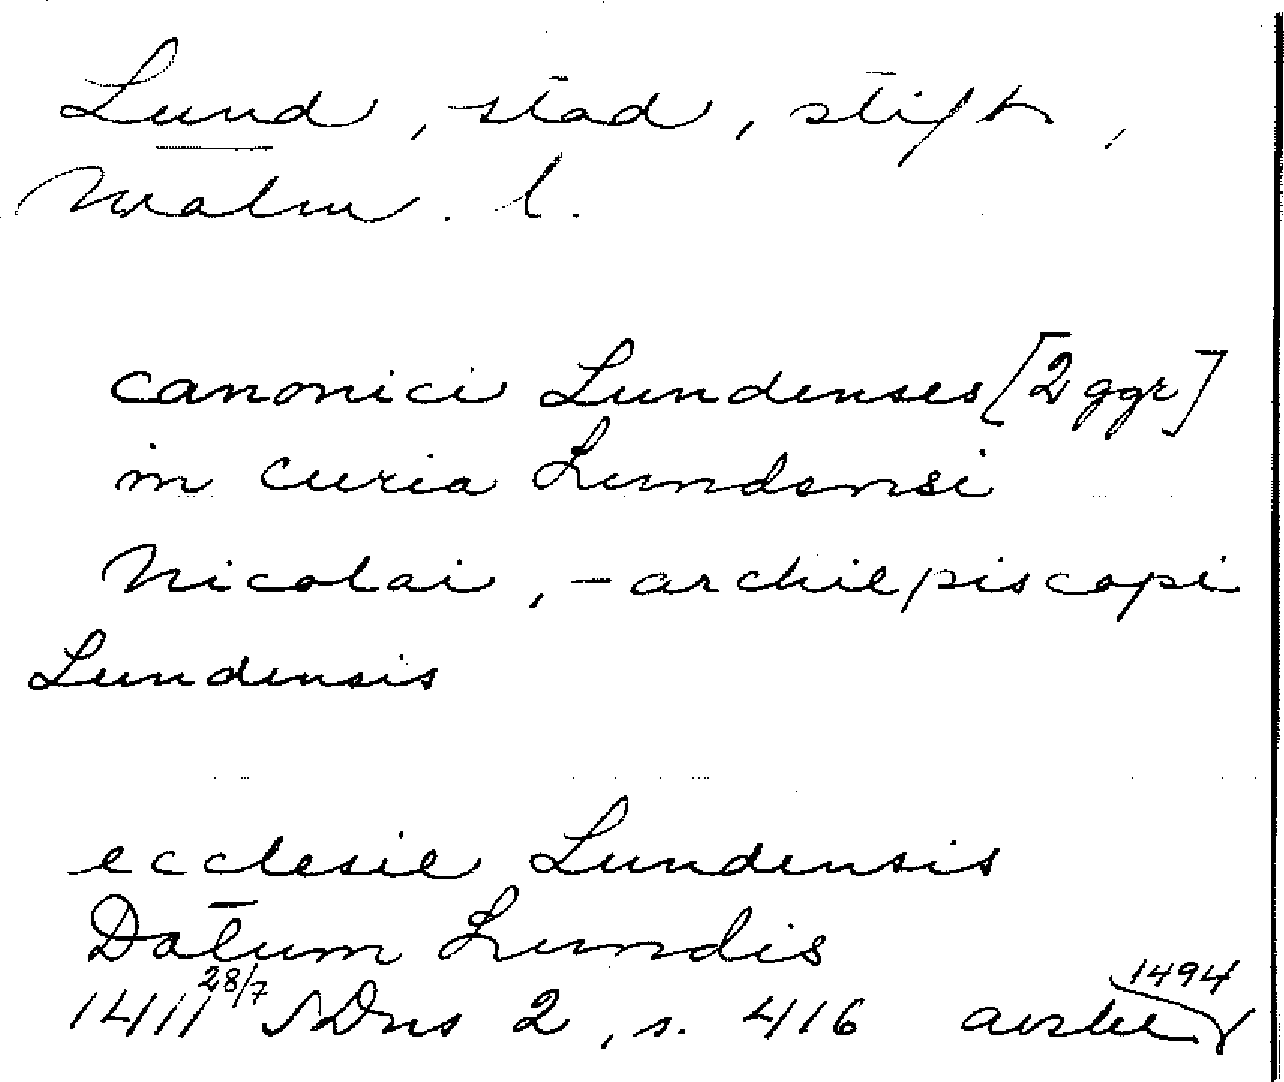 Lund, stad, stift,
Malm. l.
canonici Lundenses [2 ggr]
in curia Lundensi
Nicolai, - archiepiscopi
Lundensis
ecclesie Lundensis
Datum Lundis
1411 28/7 SDns 2, s. 416 avskr 1494